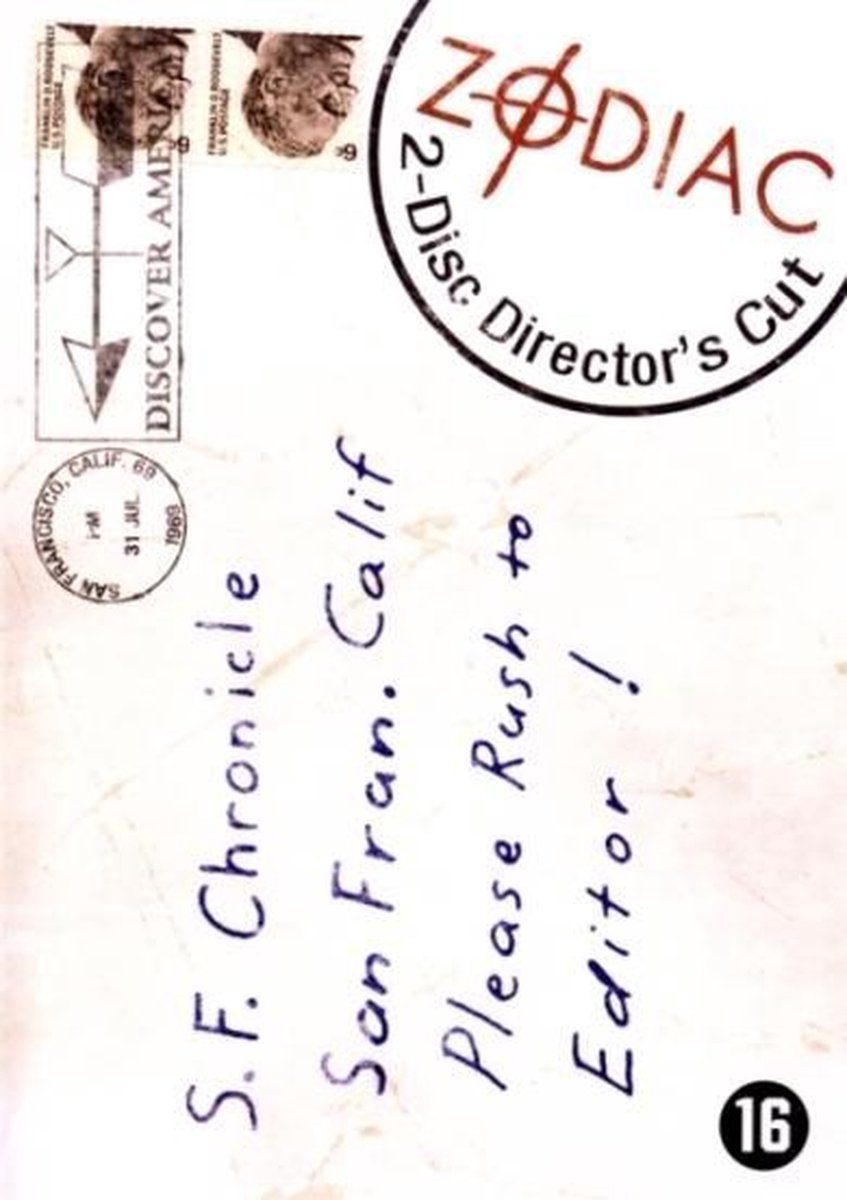 ZODIAC
2-Disc Director's Cut
FRANKLIN D. ROOSEVELT
U.S. POSTAGE
6¢
FRANKLIN D. ROOSEVELT
U.S. POSTAGE
6¢
DISCOVER AMERICA
SAN FRANCISCO, CALIF. 69
PM
31 JUL
1969
S.F. Chronicle
San Fran. Calif
Please Rush to
Editor !
16